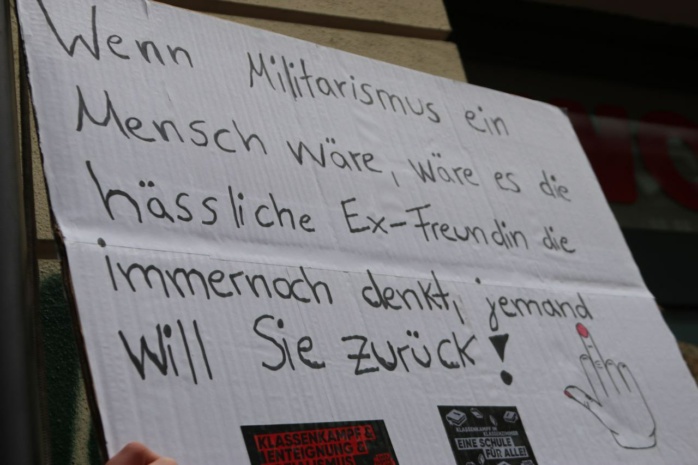 Wenn Militarismus ein
Mensch wäre, wäre es die
hässliche Ex-Freundin die
immernoch denkt, jemand
Will Sie zurück!
KLASSENKAMPF &
ENTEIGNUNG &
KLASSENKAMPF IM
KLASSENZIMMER!
EINE SCHULE
FÜR ALLE!